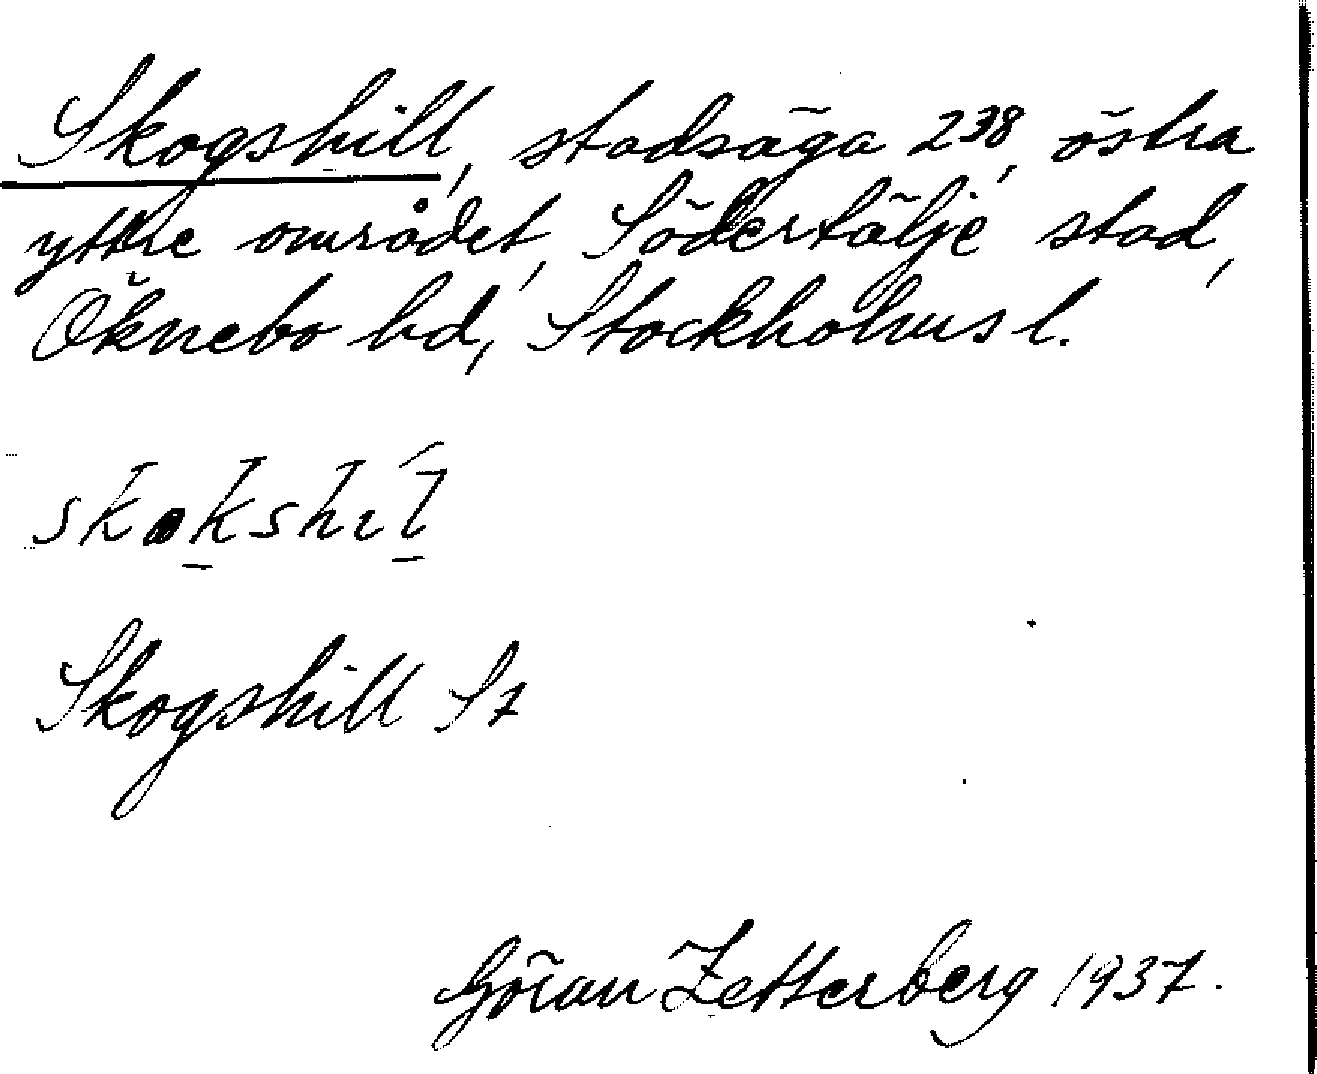 Skogshill, stadsäga 238, östra
yttre området, Södertälje stad,
Öknebo hd, Stockholms l.
Skogshill
Göran Zetterberg 1937.